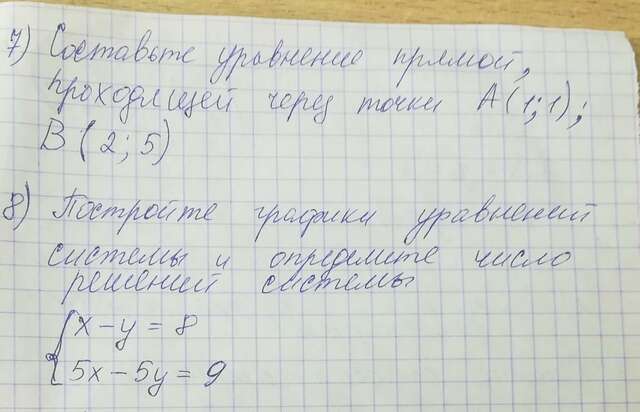 7) Составьте уравнение прямой,
проходящей через точки А(1;1);
В (2; 5)
8) Постройте графики уравнений
системы и определите число
решений системы
{ x - y = 8
5x - 5y = 9